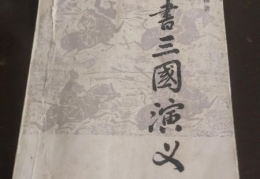 書三國演义